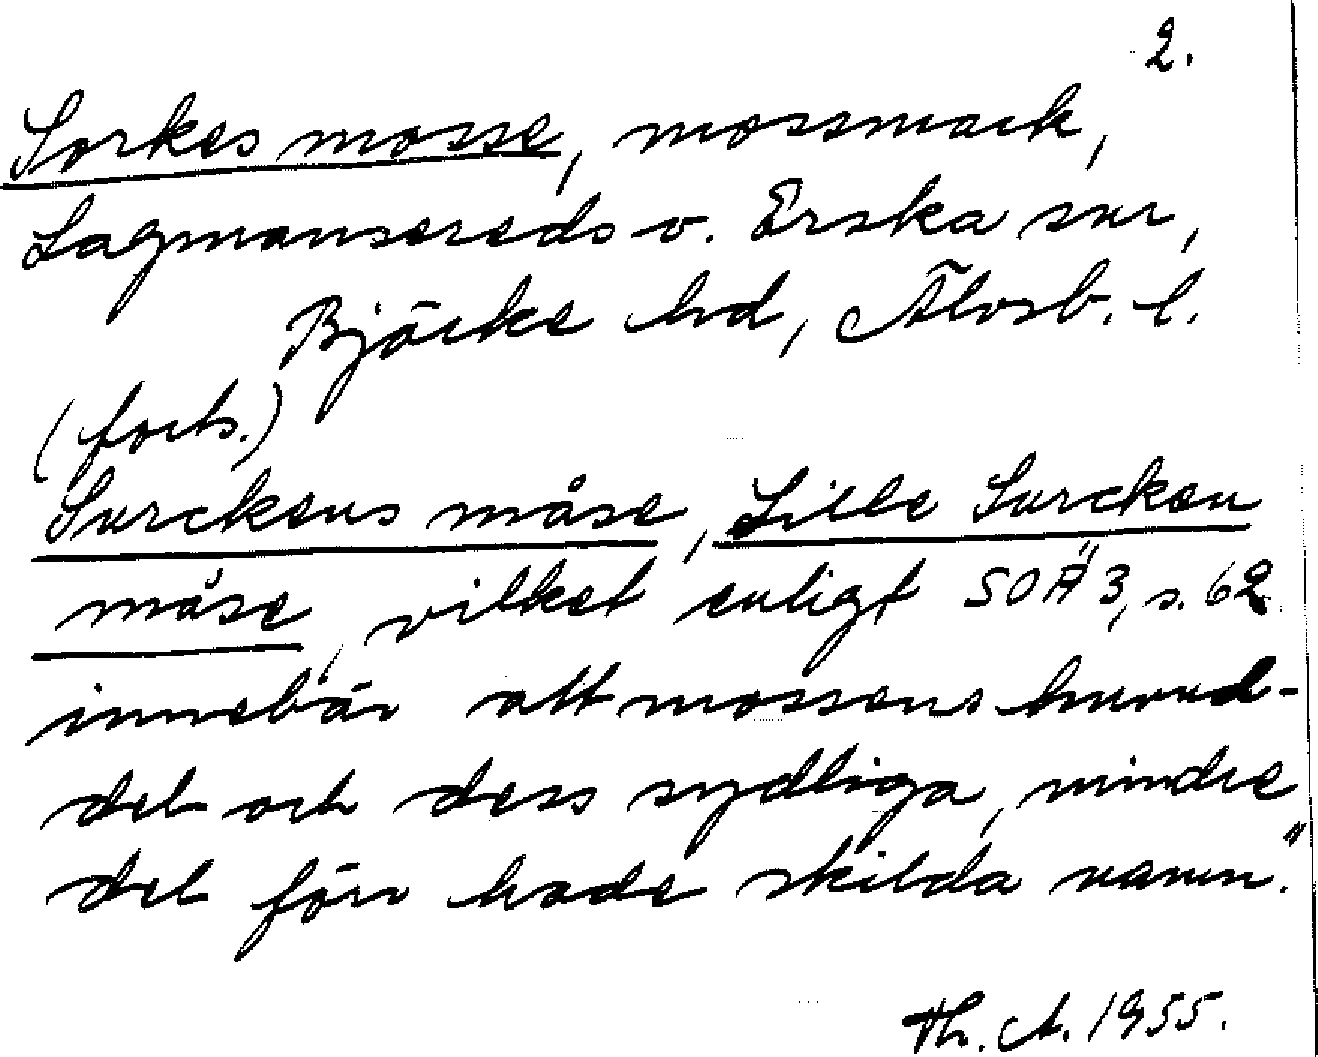 2.
Sorkes mosse, mossmark,
Lagmansereds o. Erska snr,
Bjärke hd, Älvsb. l.
(forts.)
Surckens måse, Lille Surcken
måse, vilket enligt SOÄ 3, s. 62
innebär att mossens huvud-
del och dess sydliga, mindre
del förr hade skilda namn."
Th. A. 1955.